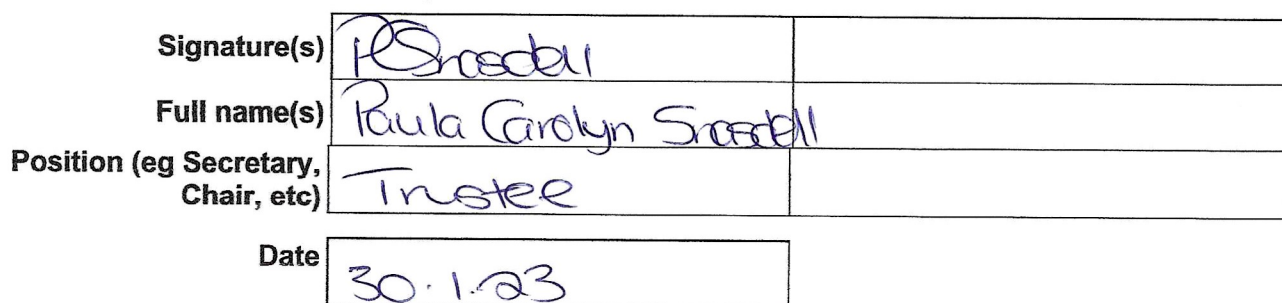 Signature(s) PCSnosdell
Full name(s) Paula Carolyn Snosdell
Position (eg Secretary,
Chair, etc) Trustee
Date 30.1.23